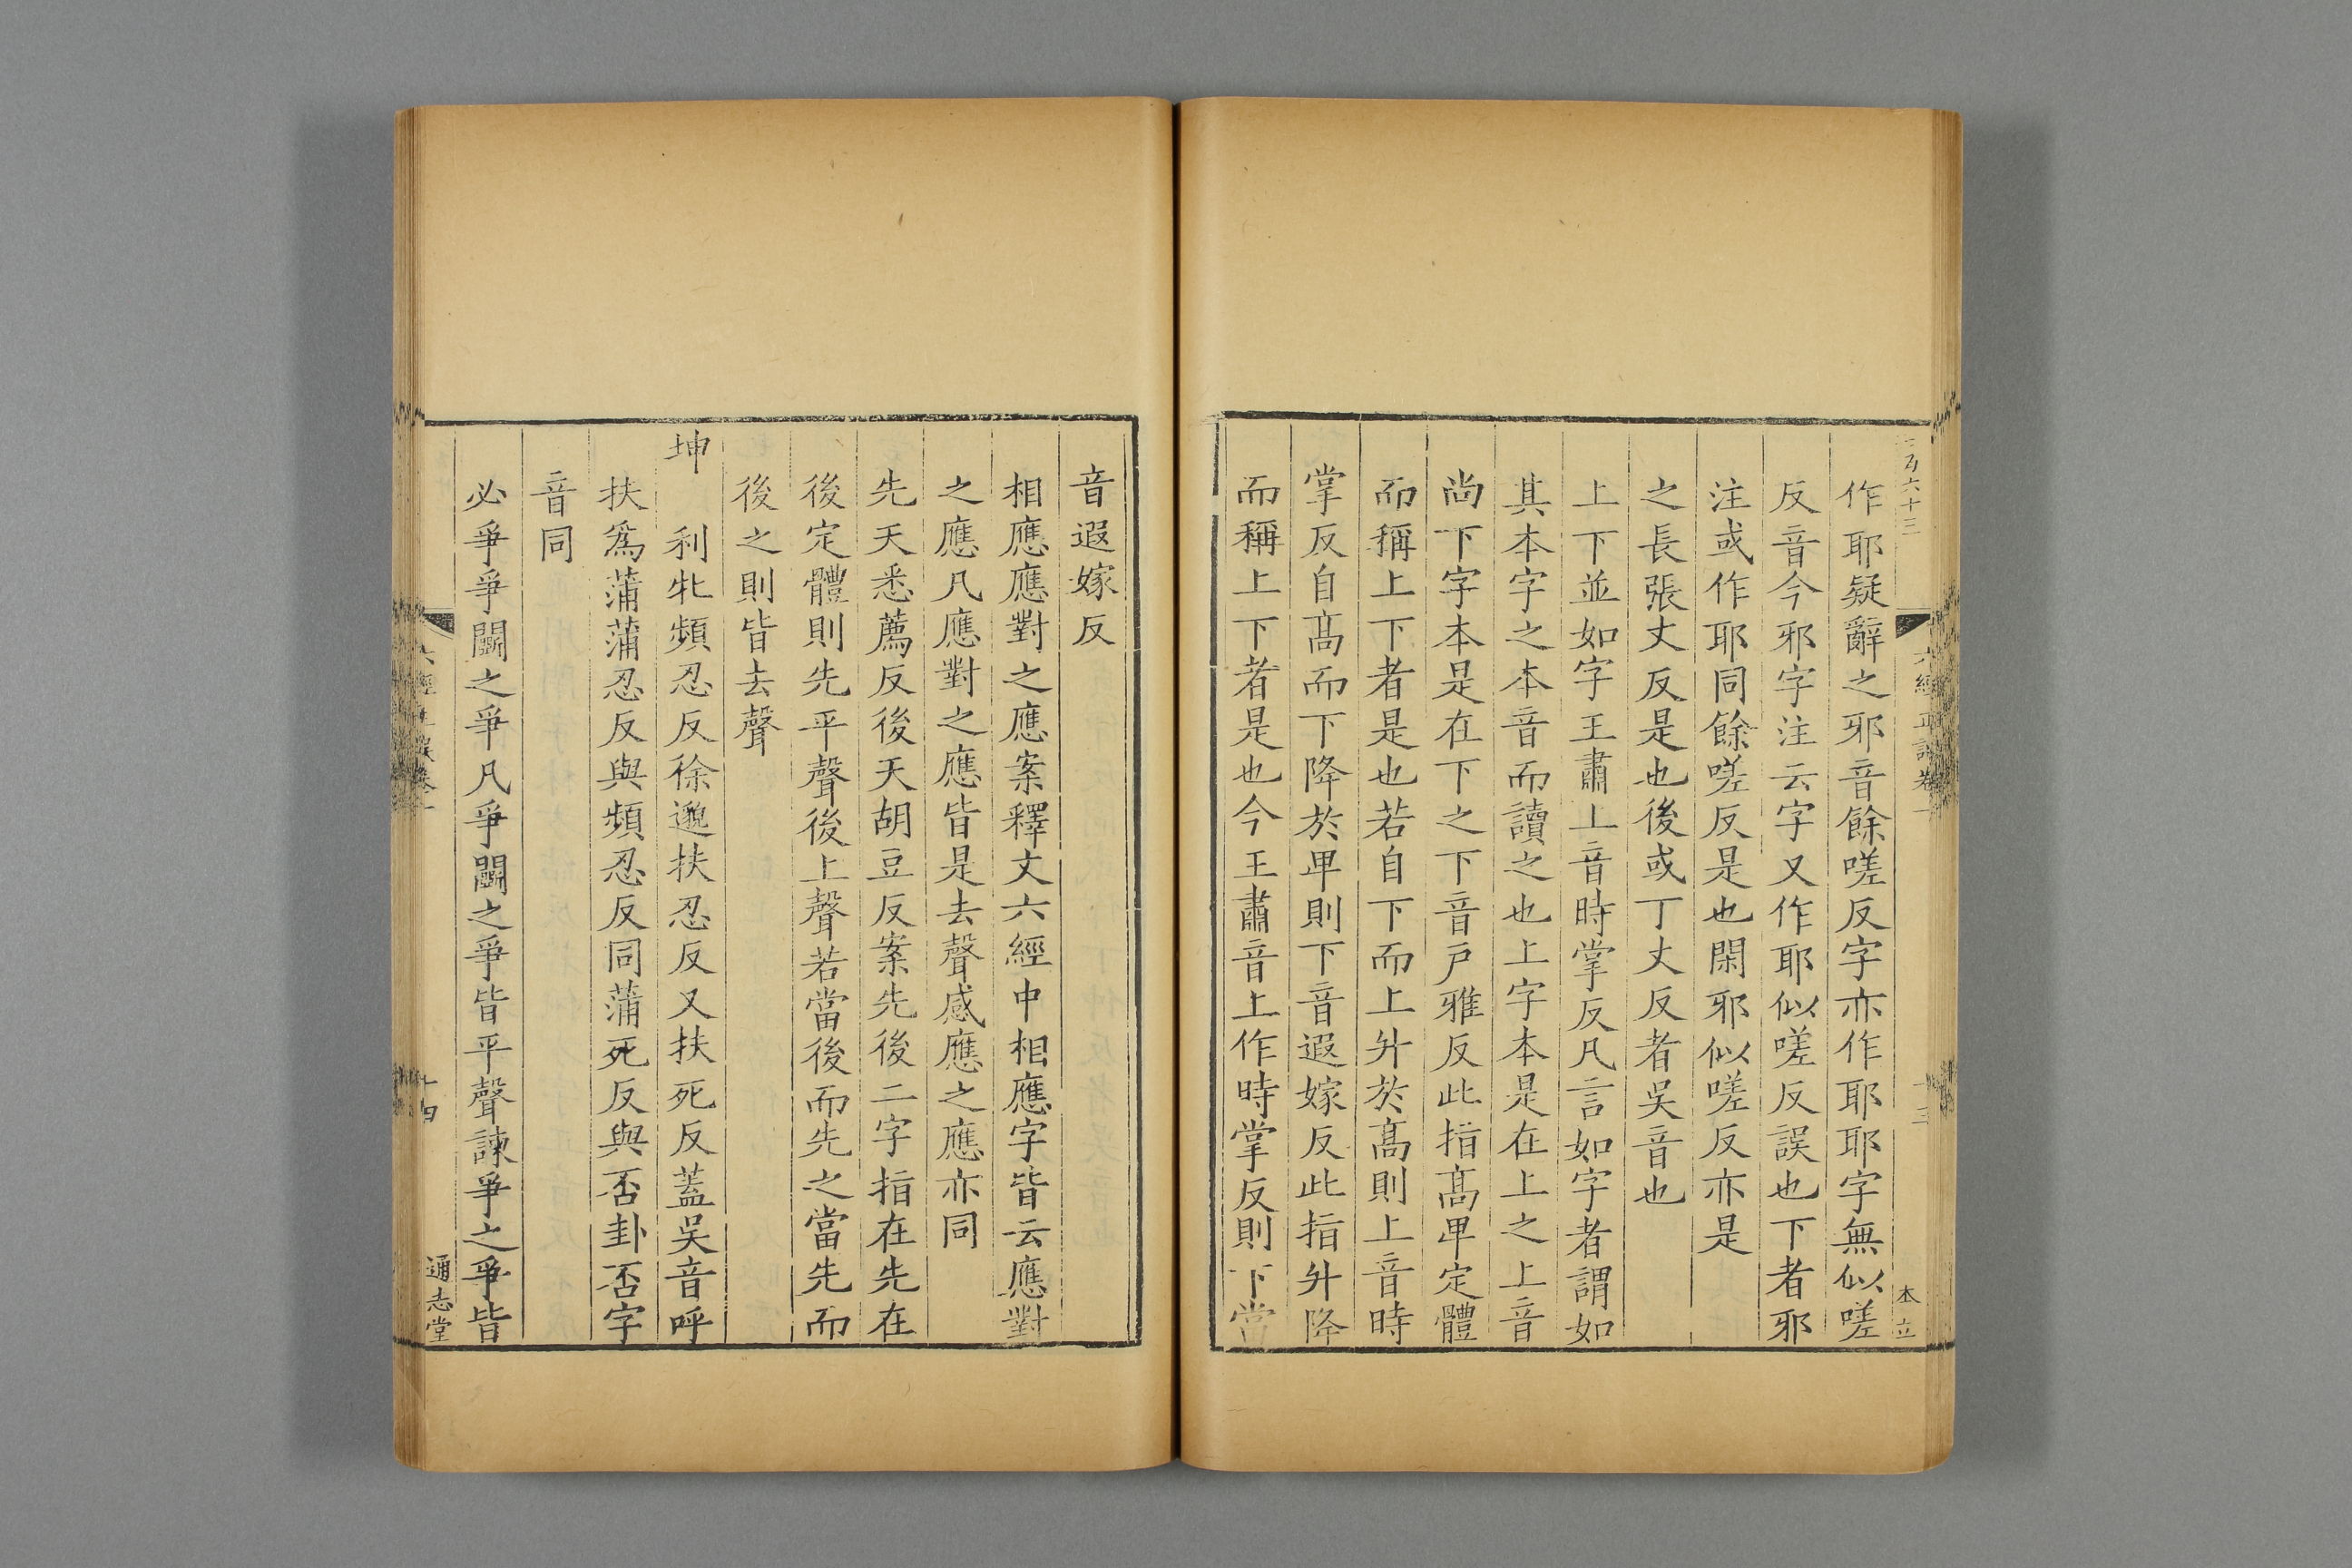 作耶疑辭之邪音餘嗟反字亦作耶耶字無似嗟
反音今邪字注云字又作耶似嗟反誤也下者邪
注或作耶同餘嗟反是也閑邪似嗟反亦是
之長張丈反是也後或丁丈反者吴音也
上下並如字王肅上音時掌反凡言如字者謂如
其本字之本音而讀之也上字本是在上之上音
尚下字本是在下之下音戸雅反此指髙卑定體
而稱上下者是也若自下而上升於髙則上音時
掌反自髙而下降於卑則下音遐嫁反此指升降
而稱上下者是也今王肅音上作時掌反則下當
音遐嫁反
相應應對之應案釋文六經中相應字皆云應對
之應凡應對之應皆是去聲感應之應亦同
先天悉薦反後天胡豆反案先後二字指在先在
後定體則先平聲後上聲若當後而先之當先而
後之則皆去聲
坤 利牝頻忍反徐邈扶忍反又扶死反蓋吴音呼
扶為蒲蒲忍反與頻忍反同蒲死反與否卦否字
音同
必爭爭鬭之爭凡爭鬭之爭皆平聲諫爭之爭皆
六經正誤卷一
本立
通志堂